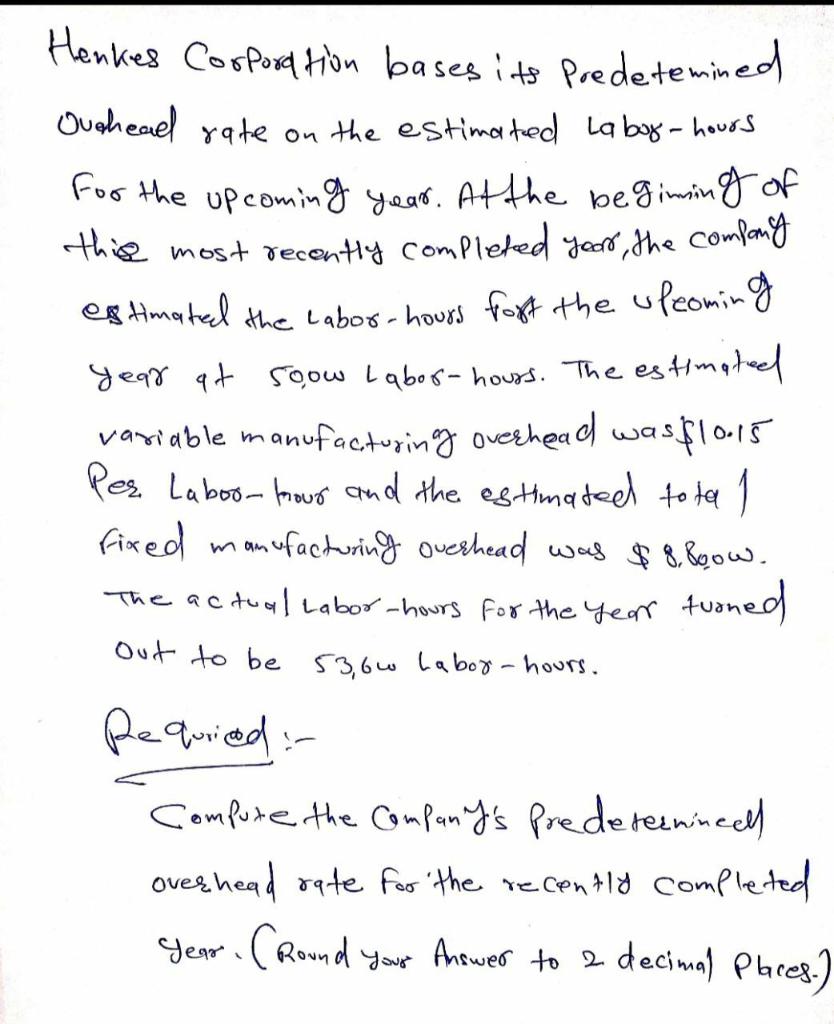 Henkes Corporation bases its Predetemined
Ovehead rate on the estimated Labor-hours
For the upcoming year. At the beginning of
this most recently completed year, the company
estimated the Labor-hours for the upcoming
year at 50,000 Labor-hours. The estimated
variable manufacturing overhead was $10.15
Per Labor-hour and the estimated total
fixed manufacturing overhead was $
The actual Labor-hours For the year turned
Out to be 53,600 Labor-hours.
Requried :-
Compute the Company's Predetermined
overhead rate For the recently completed
Year. (Round your Answer to 2 decimal Places.)